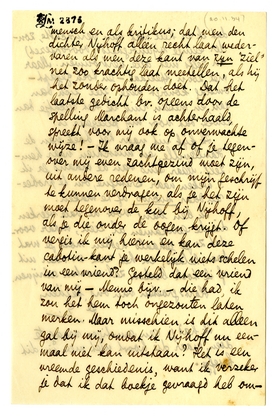 M 2376
(20.11.'34)
mensch en als kritikus; dat men den
dichter Nijhoff alleen recht laat weder-
varen als men deze kant van zijn "ziel"
net zoo krachtig laat meetellen, als hij
het zonder ophouden doet. Dat het
laatste gedicht bv. opeens door de
spelling Marchant is achterhaald,
spreekt voor mij ook op onverwachte
wijze! – Ik vraag me af of je tegen-
over mij even zachtgezind moet zijn,
uit andere redenen, om mijn geschrijf
te kunnen verdragen, als je het zijn
moet tegenover de kul bij Nijhoff,
als je die onder de oogen krijgt. Of
vergis ik mij hierin en kan deze
cabotin-kant je werkelijk niets schelen
in een vriend? Gesteld dat een vriend
van mij – Menno bijv. – die had ik
zou het hem toch ongezouten laten
merken. Maar misschien is dit alleen
gal bij mij, omdat ik Nijhoff nu een-
maal niet kan uitstaan? Het is een
vreemde geschiedenis, want ik verzeker
je dat ik dat boekje gevraagd heb om-